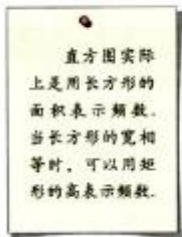 直方图实际
上是用长方形的
面积表示频数.
当长方形的宽相
等时，可以用矩
形的高表示频数.